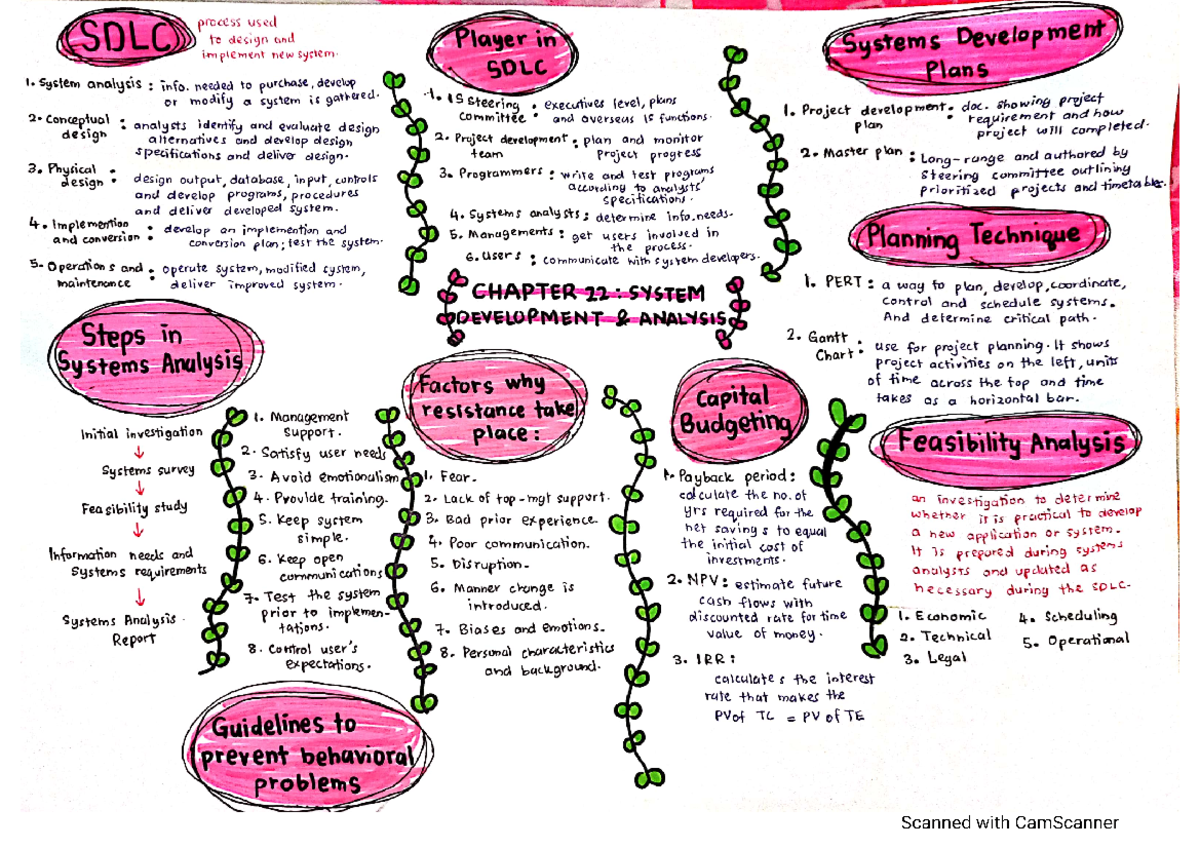 SDLC
process used
to design and
implement new system.
1. System analysis : info. needed to purchase, develop
or modify a system is gathered.
2. Conceptual
design : analysts identify and evaluate design
alternatives and develop design
specifications and deliver design.
3. Physical
design : design output, database, input, controls
and develop programs, procedures
and deliver developed system.
4. Implemention
and conversion : develop an implemention and
conversion plan; test the system.
5. Operations and
maintenance : operate system, modified system,
deliver improved system.
Player in
SDLC
1. IS Steering
committee : executives level, plans
and overseas IS functions.
2. Project development
team : plan and monitor
project progress
3. Programmers : write and test programs
according to analysts'
specifications.
4. Systems analysts : determine info. needs.
5. Managements : get users involved in
the process.
6. Users : communicate with system developers.
Systems Development
Plans
1. Project development
plan : doc. showing project
requirement and how
project will completed.
2. Master plan : Long-range and authored by
Steering committee outlining
prioritized projects and timetables.
Planning Technique
1. PERT : a way to plan, develop, coordinate,
control and schedule systems.
And determine critical path.
2. Gantt
Chart : use for project planning. It shows
project activities on the left, units
of time across the top and time
takes as a horizontal bar.
CHAPTER 22 : SYSTEM
DEVELOPMENT & ANALYSIS
Steps in
Systems Analysis
Initial investigation
↓
Systems survey
↓
Feasibility study
↓
Information needs and
Systems requirements
↓
Systems Analysis
Report
1. Management
Support.
2. Satisfy user needs
3. Avoid emotionalism
4. Provide training.
5. Keep system
simple.
6. Keep open
communications
7. Test the system
prior to implemen-
tations.
8. Control user's
expectations.
Guidelines to
prevent behavioral
problems
Factors why
resistance take
place :
1. Fear.
2. Lack of top-mgt support.
3. Bad prior experience.
4. Poor communication.
5. Disruption.
6. Manner change is
introduced.
7. Biases and emotions.
8. Personal characteristics
and background.
Capital
Budgeting
1. Payback period :
calculate the no. of
yrs required for the
net savings to equal
the initial cost of
investments.
2. NPV : estimate future
cash flows with
discounted rate for time
value of money.
3. IRR :
calculates the interest
rate that makes the
PV of TC = PV of TE
Feasibility Analysis
an investigation to determine
whether it is practical to develop
a new application or system.
It is prepared during systems
analysts and updated as
necessary during the SDLC.
1. Economic
2. Technical
3. Legal
4. Scheduling
5. Operational
Scanned with CamScanner